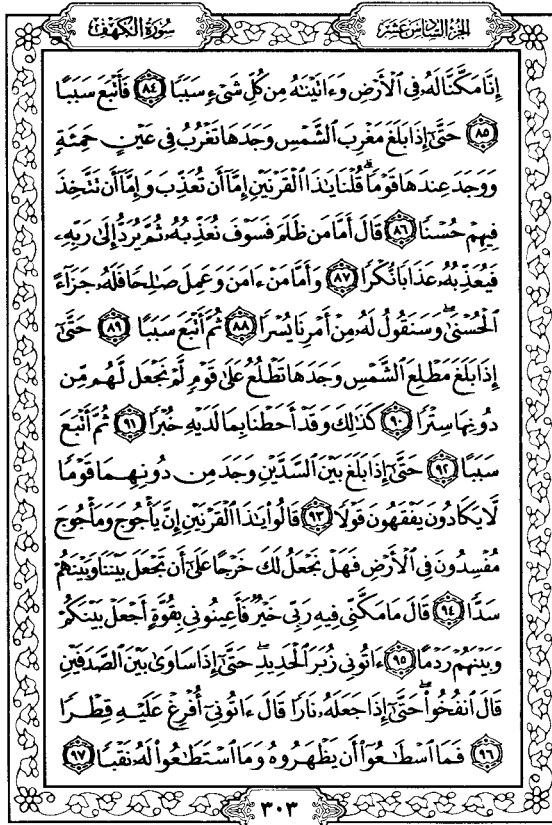 الجزء السادس عشر
سورة الكهف
إِنَّا مَكَّنَّا لَهُۥ فِي ٱلْأَرْضِ وَءَاتَيْنَٰهُ مِن كُلِّ شَىْءٍ سَبَبًا ٨٤ فَأَتْبَعَ سَبَبًا
٨٥ حَتَّىٰٓ إِذَا بَلَغَ مَغْرِبَ ٱلشَّمْسِ وَجَدَهَا تَغْرُبُ فِي عَيْنٍ حَمِئَةٍ
وَوَجَدَ عِندَهَا قَوْمًا ۗ قُلْنَا يَٰذَا ٱلْقَرْنَيْنِ إِمَّآ أَن تُعَذِّبَ وَإِمَّآ أَن نَتَّخِذَ
فِيهِمْ حُسْنًا ٨٦ قَالَ أَمَّا مَن ظَلَمَ فَسَوْفَ نُعَذِّبُهُۥ ثُمَّ يُرَدُّ إِلَىٰ رَبِّهِۦ
فَيُعَذِّبُهُۥ عَذَابًا نُّكْرًا ٨٧ وَأَمَّا مَنْ ءَامَنَ وَعَمِلَ صَٰلِحًا فَلَهُۥ جَزَآءً
ٱلْحُسْنَىٰ ۖ وَسَنَقُولُ لَهُۥ مِنْ أَمْرِنَا يُسْرًا ٨٨ ثُمَّ أَتْبَعَ سَبَبًا ٨٩ حَتَّىٰٓ
إِذَا بَلَغَ مَطْلِعَ ٱلشَّمْسِ وَجَدَهَا تَطْلُعُ عَلَىٰ قَوْمٍ لَّمْ نَجْعَل لَّهُم مِّن
دُونِهَا سِتْرًا ٩٠ كَذَٰلِكَ وَقَدْ أَحَطْنَا بِمَا لَدَيْهِ خُبْرًا ٩١ ثُمَّ أَتْبَعَ
سَبَبًا ٩٢ حَتَّىٰٓ إِذَا بَلَغَ بَيْنَ ٱلسَّدَّيْنِ وَجَدَ مِن دُونِهِمَا قَوْمًا
لَّا يَكَادُونَ يَفْقَهُونَ قَوْلًا ٩٣ قَالُوا۟ يَٰذَا ٱلْقَرْنَيْنِ إِنَّ يَأْجُوجَ وَمَأْجُوجَ
مُفْسِدُونَ فِي ٱلْأَرْضِ فَهَلْ نَجْعَلُ لَكَ خَرْجًا عَلَىٰٓ أَن تَجْعَلَ بَيْنَنَا وَبَيْنَهُمْ
سَدًّا ٩٤ قَالَ مَا مَكَّنِّي فِيهِ رَبِّي خَيْرٌ فَأَعِينُونِي بِقُوَّةٍ أَجْعَلْ بَيْنَكُمْ
وَبَيْنَهُمْ رَدْمًا ٩٥ ءَاتُونِي زُبَرَ ٱلْحَدِيدِ ۖ حَتَّىٰٓ إِذَا سَاوَىٰ بَيْنَ ٱلصَّدَفَيْنِ
قَالَ ٱنفُخُوا۟ ۖ حَتَّىٰٓ إِذَا جَعَلَهُۥ نَارًا قَالَ ءَاتُونِيٓ أُفْرِغْ عَلَيْهِ قِطْرًا
٩٦ فَمَا ٱسْطَٰعُوٓا۟ أَن يَظْهَرُوهُ وَمَا ٱسْتَطَٰعُوا۟ لَهُۥ نَقْبًا ٩٧
٣٠٣